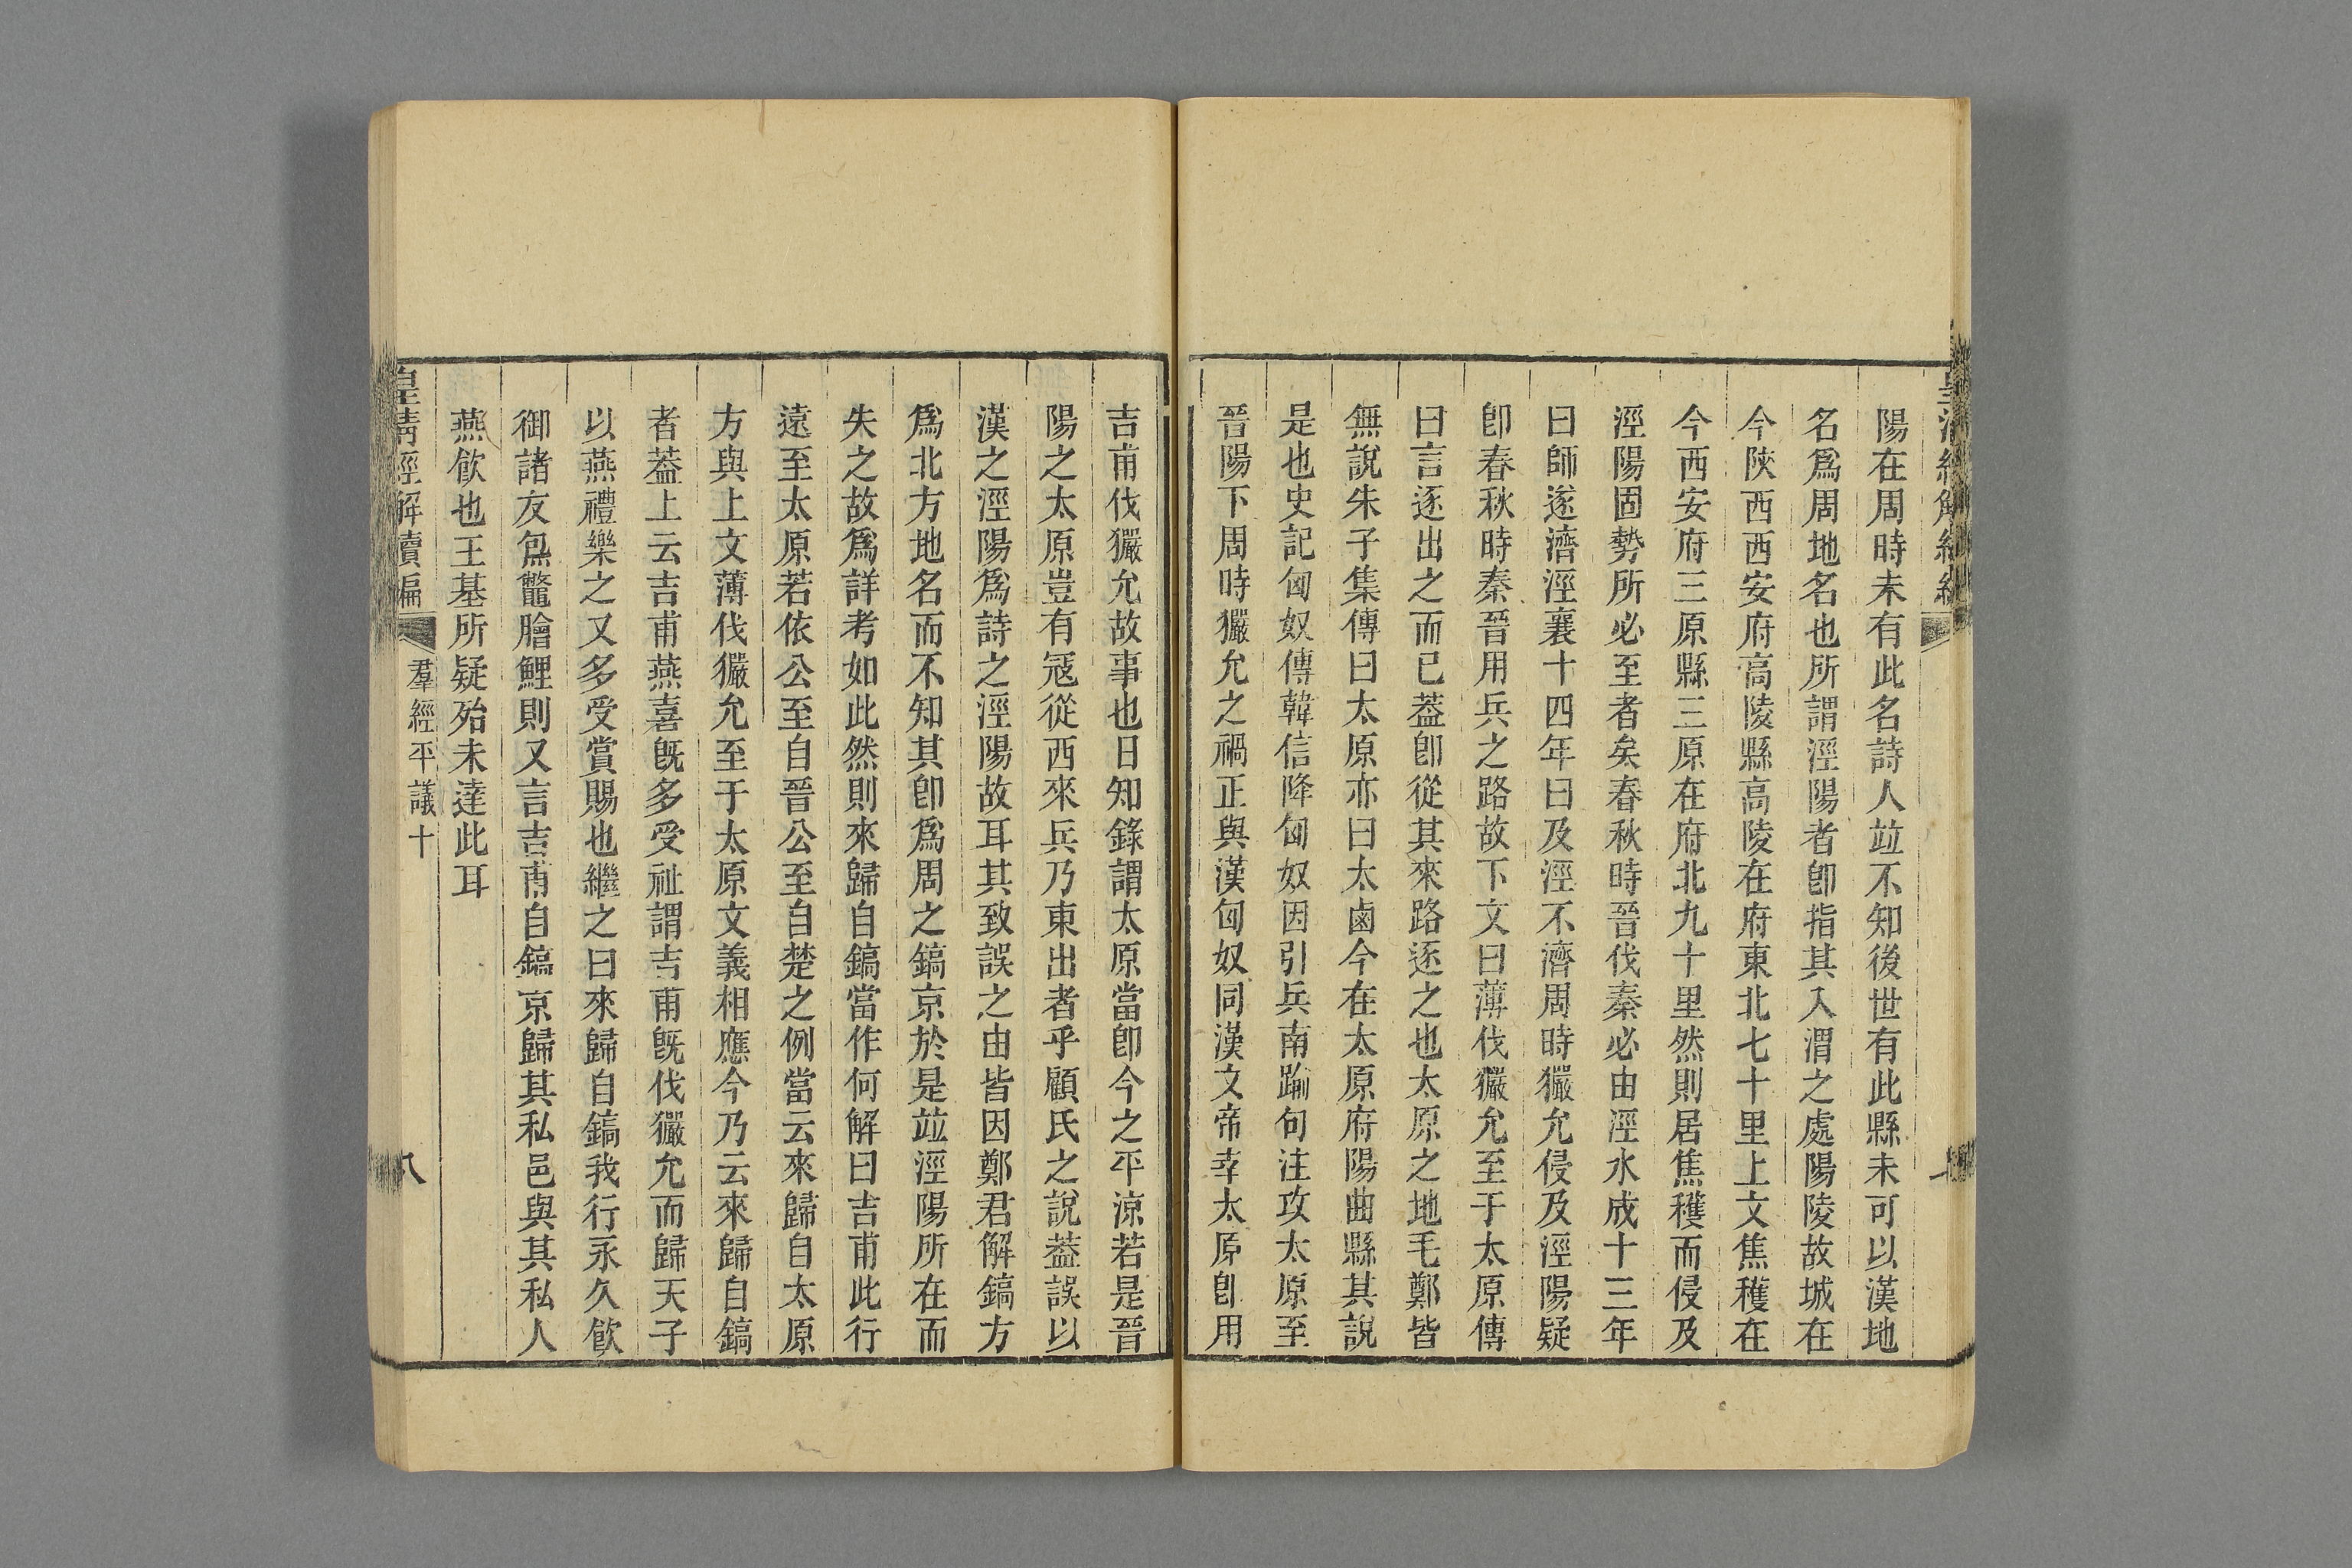 陽在周時未有此名詩人竝不知後世有此縣未可以漢地
名爲周地名也所謂涇陽者卽指其入渭之處陽陵故城在
今陝西西安府高陵縣高陵在府東北七十里上文焦穫在
今西安府三原縣三原在府北九十里然則居焦穫而侵及
涇陽固勢所必至者矣春秋時晉伐秦必由涇水成十三年
曰師遂濟涇襄十四年曰及涇不濟周時玁允侵及涇陽疑
卽春秋時秦晉用兵之路故下文曰薄伐玁允至于太原傳
曰言逐出之而已葢卽從其來路逐之也太原之地毛鄭皆
無說朱子集傳曰太原亦曰太鹵今在太原府陽曲縣其說
是也史記匈奴傳韓信降匈奴因引兵南踰句注攻太原至
晉陽下周時玁允之禍正與漢匈奴同漢文帝幸太原卽用
吉甫伐玁允故事也日知錄謂太原當卽今之平涼若是晉
陽之太原豈有寇從西來兵乃東出者乎顧氏之說葢誤以
漢之涇陽爲詩之涇陽故耳其致誤之由皆因鄭君解鎬方
爲北方地名而不知其卽爲周之鎬京於是竝涇陽所在而
失之故爲詳考如此然則來歸自鎬當作何解曰吉甫此行
遠至太原若依公至自晉公至自楚之例當云來歸自太原
方與上文薄伐玁允至于太原文義相應今乃云來歸自鎬
者葢上云吉甫燕喜旣多受祉謂吉甫旣伐玁允而歸天子
以燕禮樂之又多受賞賜也繼之曰來歸自鎬我行永久飮
御諸友炰鼈膾鯉則又言吉甫自鎬京歸其私邑與其私人
燕飮也王基所疑殆未達此耳
皇淸經解續編
羣經平議十
八